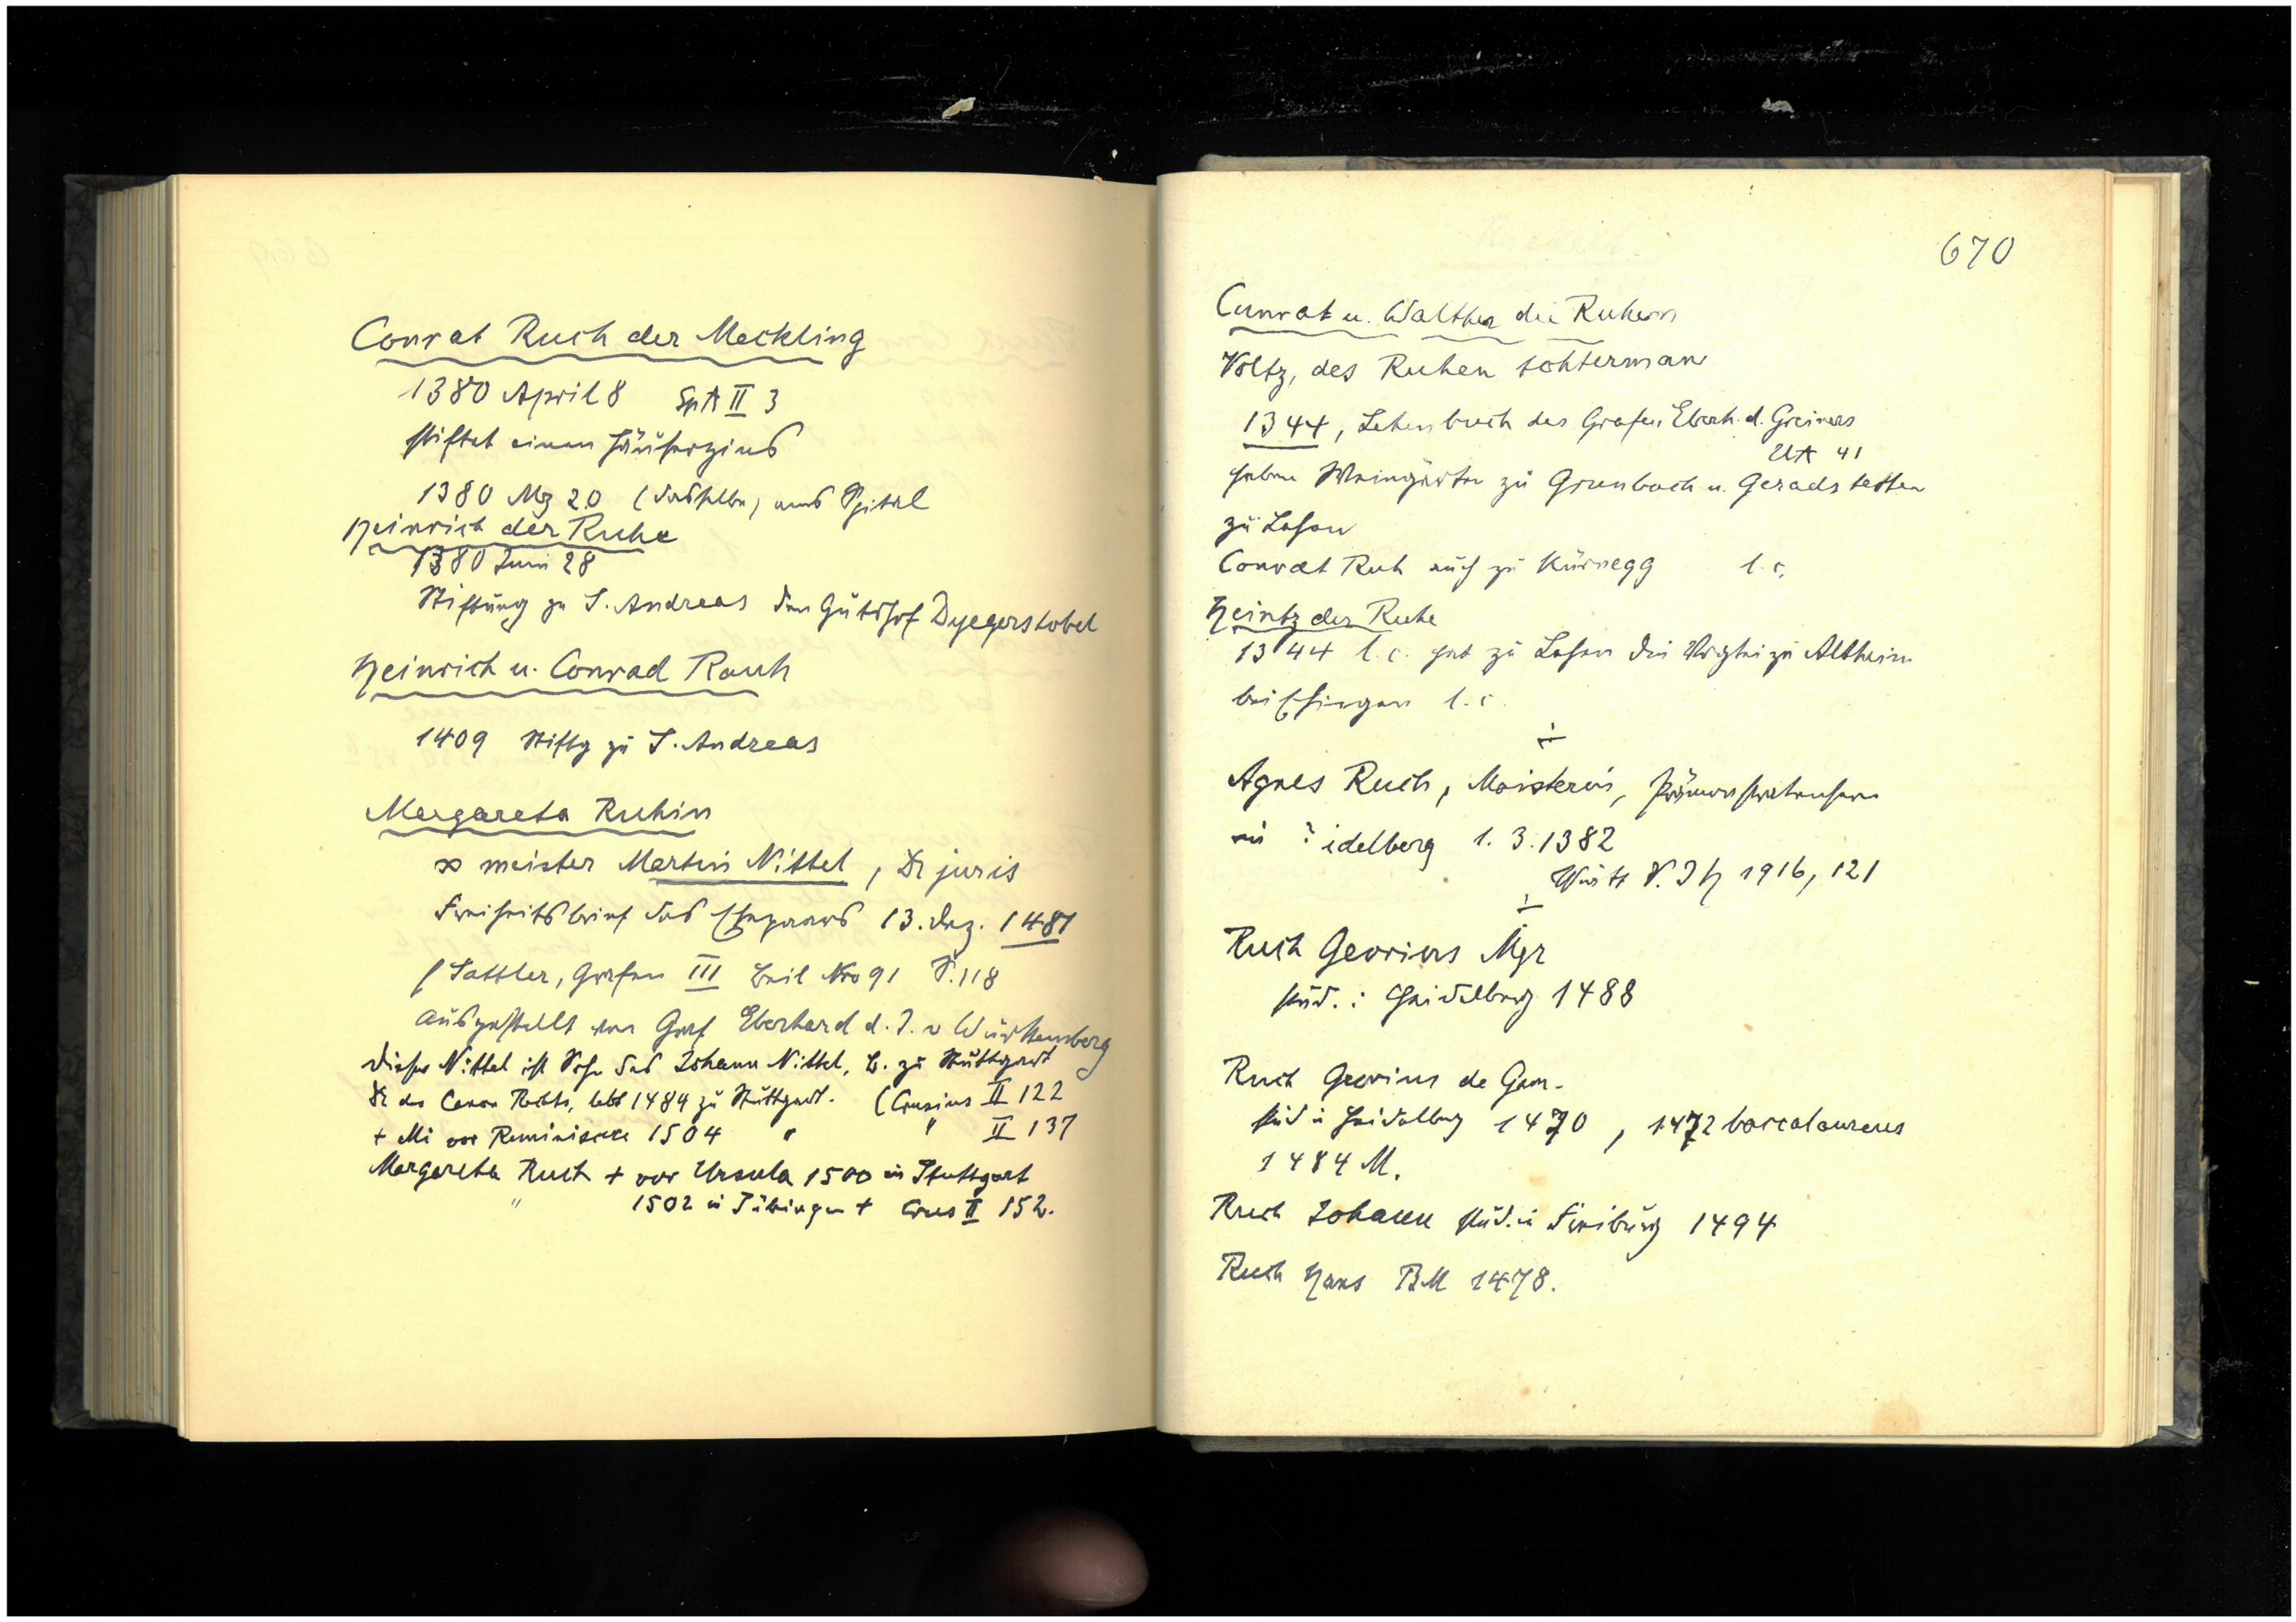 Conrat Ruch der Meckling
1380 April 8 SpA II 3
stiftet einen Häuserzins
1380 Mz 20 (dasselbe) ans Spital
Heinrich der Ruhe
1380 Juni 28
Stiftung zu S. Andreas den Gutshof Dyegerstobel
Heinrich u. Conrad Rauh
1409 Stiftg zu S. Andreas
Margareta Ruhin
∞ meister Martin Nittel, Dr juris
Freiheitsbrief des Ehepaars 13. Dez. 1481
Sattler, Grafen III Beil Nro 91 S. 118
ausgestellt von Graf Eberhard d. J. v Württemberg
dieser Nittel ist Sohn des Johann Nittel, B. zu Stuttgart
Dr des Canon Rechts, lebt 1484 zu Stuttgart. (Crusius II 122
+ Mi vor Reminiscere 1504 " " II 137
Margareta Ruch + vor Ursula 1500 in Stuttgart
" 1502 in Tübingen + Crus II 152.
670
Cunrat u. Walther die Ruhen
Voltz, des Ruhen tohterman
1344, Lehenbuch des Grafen Eberh. d. Greiners
UA 41
haben Weingärten zu Grunbach u. Geradstetten
zu Lehen
Conrat Ruh auch zu Kürnegg l. c.
Heintz der Ruhe
1344 l. c. hat zu Lehen die Vogtei zu Altheim
bei Ehingen l. c.
Agnes Ruch, Maisterin, Prämonstratenserin
in ? idelberg 1. 3. 1382
Württ V. J H 1916, 121
Ruch Georius Mgr
stud. : Heidelberg 1488
Ruch Georius de Gam.
stud i Heidelberg 1470, 1472 baccalaureus
1484 M.
Ruch Johann stud. in Freiburg 1494
Ruch Hans BM 1478.